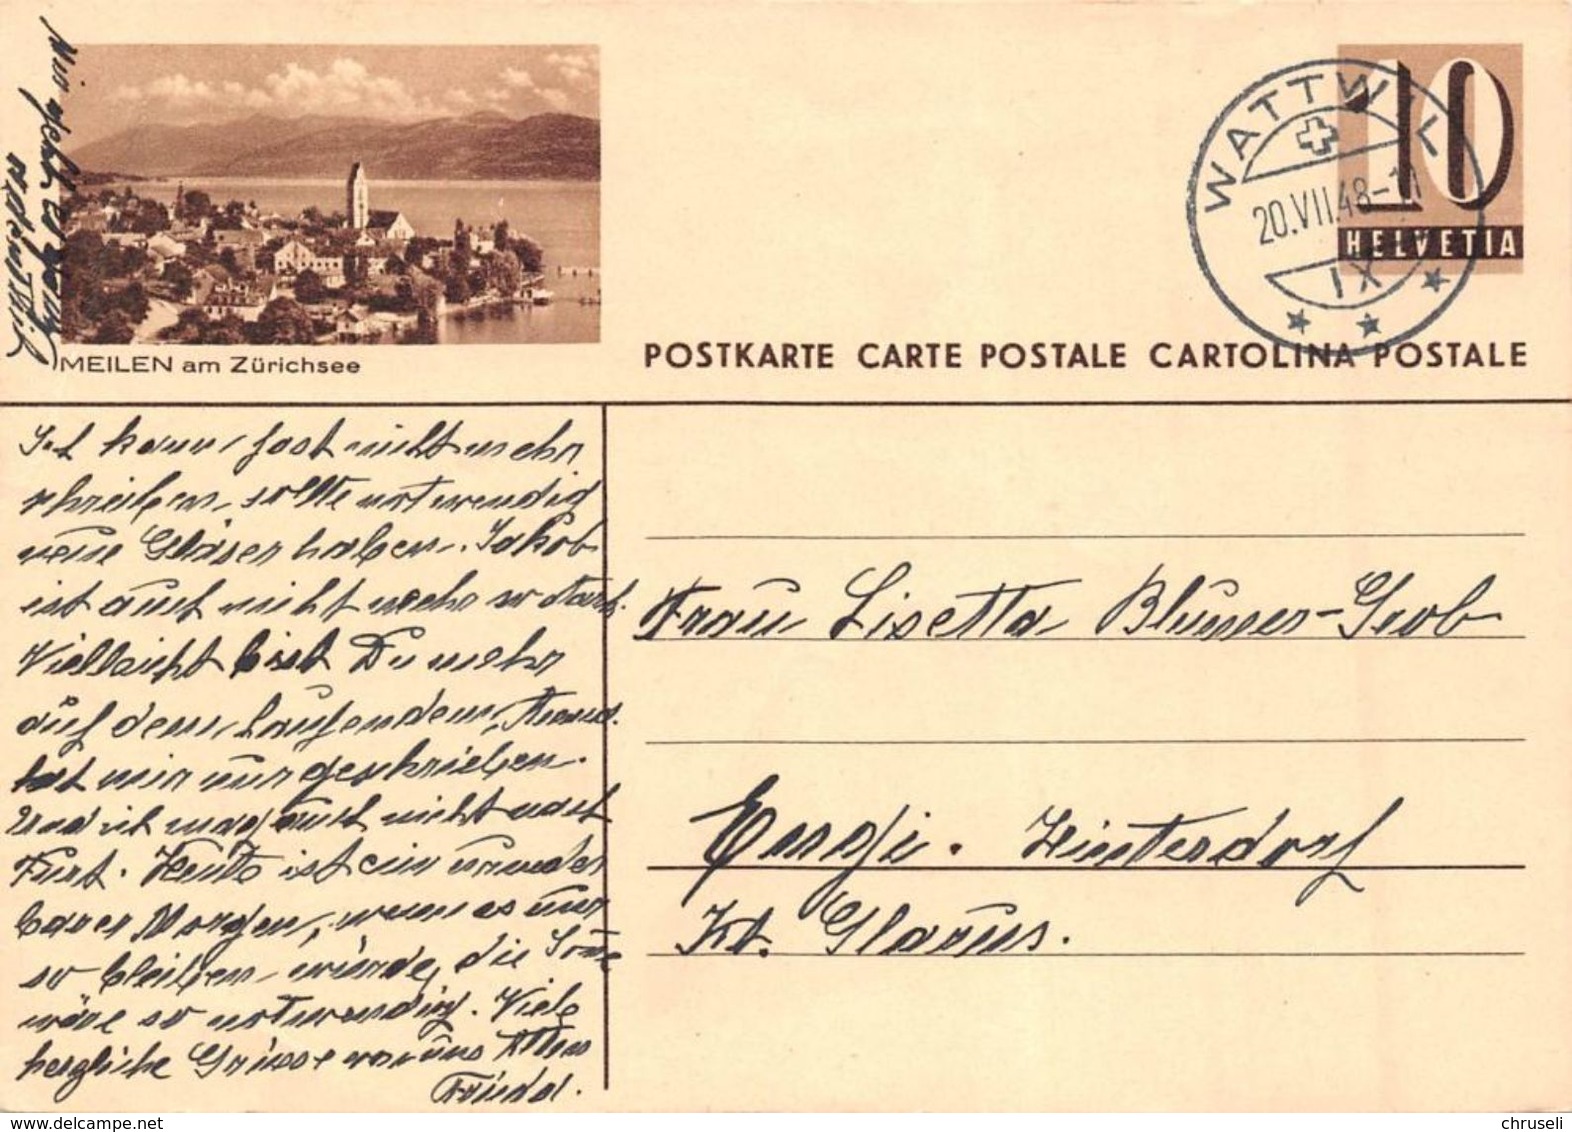 Mir geht es ganz
ordentlich
MEILEN am Zürichsee
WATTWIL
20.VII.48-11
IX
10
HELVETIA
POSTKARTE CARTE POSTALE CARTOLINA POSTALE
Ich kann fast nicht mehr
schreiben, sollte notwendig
neue Gläser haben. Jakob
ist auch nicht mehr so stark.
Vielleicht bist Du mehr
auf dem Laufenden,
hat mir nur geschrieben.
Und ich mag auch nicht nach
Furt. Heute ist ein wunder
barer Morgen, wenn es nur
so bleiben würde, die Sonne
wäre so notwendig. Viele
herzliche Grüsse von uns Allen
Frieda.
Frau Lisetta Blumer-Grob
Engi. Hinterdorf
Kt. Glarus.
delcampe.net
chruseli